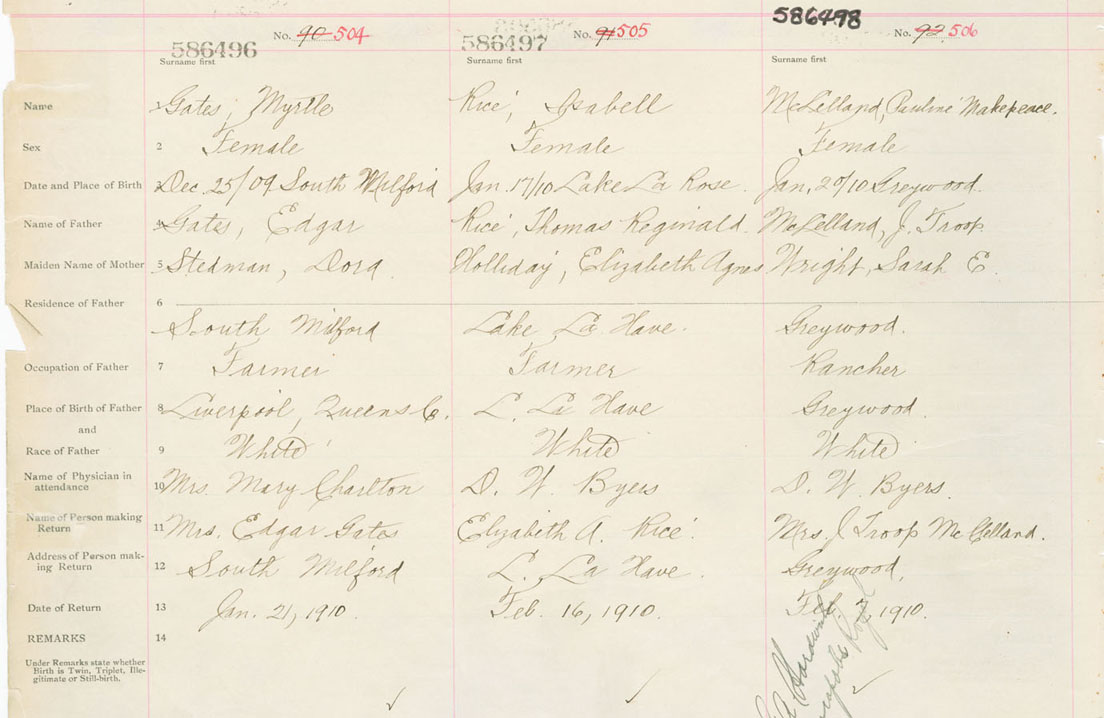 586496 No. 90 504 586497 No. 91 505 586498 No. 92 506
Surname first Surname first Surname first
Name 1 Gates, Myrtle Rice, Isabell McLelland, Pauline Makepeace.
Sex 2 Female Female Female
Date and Place of Birth 3 Dec. 25/09 South Milford Jan. 17/10 Lake La Rose. Jan. 29/10 Greywood.
Name of Father 4 Gates, Edgar Rice, Thomas Reginald. McLelland, J. Troop
Maiden Name of Mother 5 Stedman, Dora. Holliday, Elizabeth Agnes Wright, Sarah E.
Residence of Father 6
South Milford Lake La Have. Greywood.
Occupation of Father 7 Farmer Farmer Rancher
Place of Birth of Father 8 Liverpool, Queens Co. L. La Have Greywood.
and
Race of Father 9 White White White
Name of Physician in
attendance 10 Mrs. Mary Charlton D. W. Byers D. W. Byers.
Name of Person making
Return 11 Mrs. Edgar Gates Elizabeth A. Rice. Mrs. J Troop McClelland.
Address of Person mak-
ing Return 12 South Milford L. La Have. Greywood,
Date of Return 13 Jan. 21, 1910. Feb. 16, 1910. 1910.
REMARKS 14
Under Remarks state whether
Birth is Twin, Triplet, Ille-
gitimate or Still-birth.
Royal